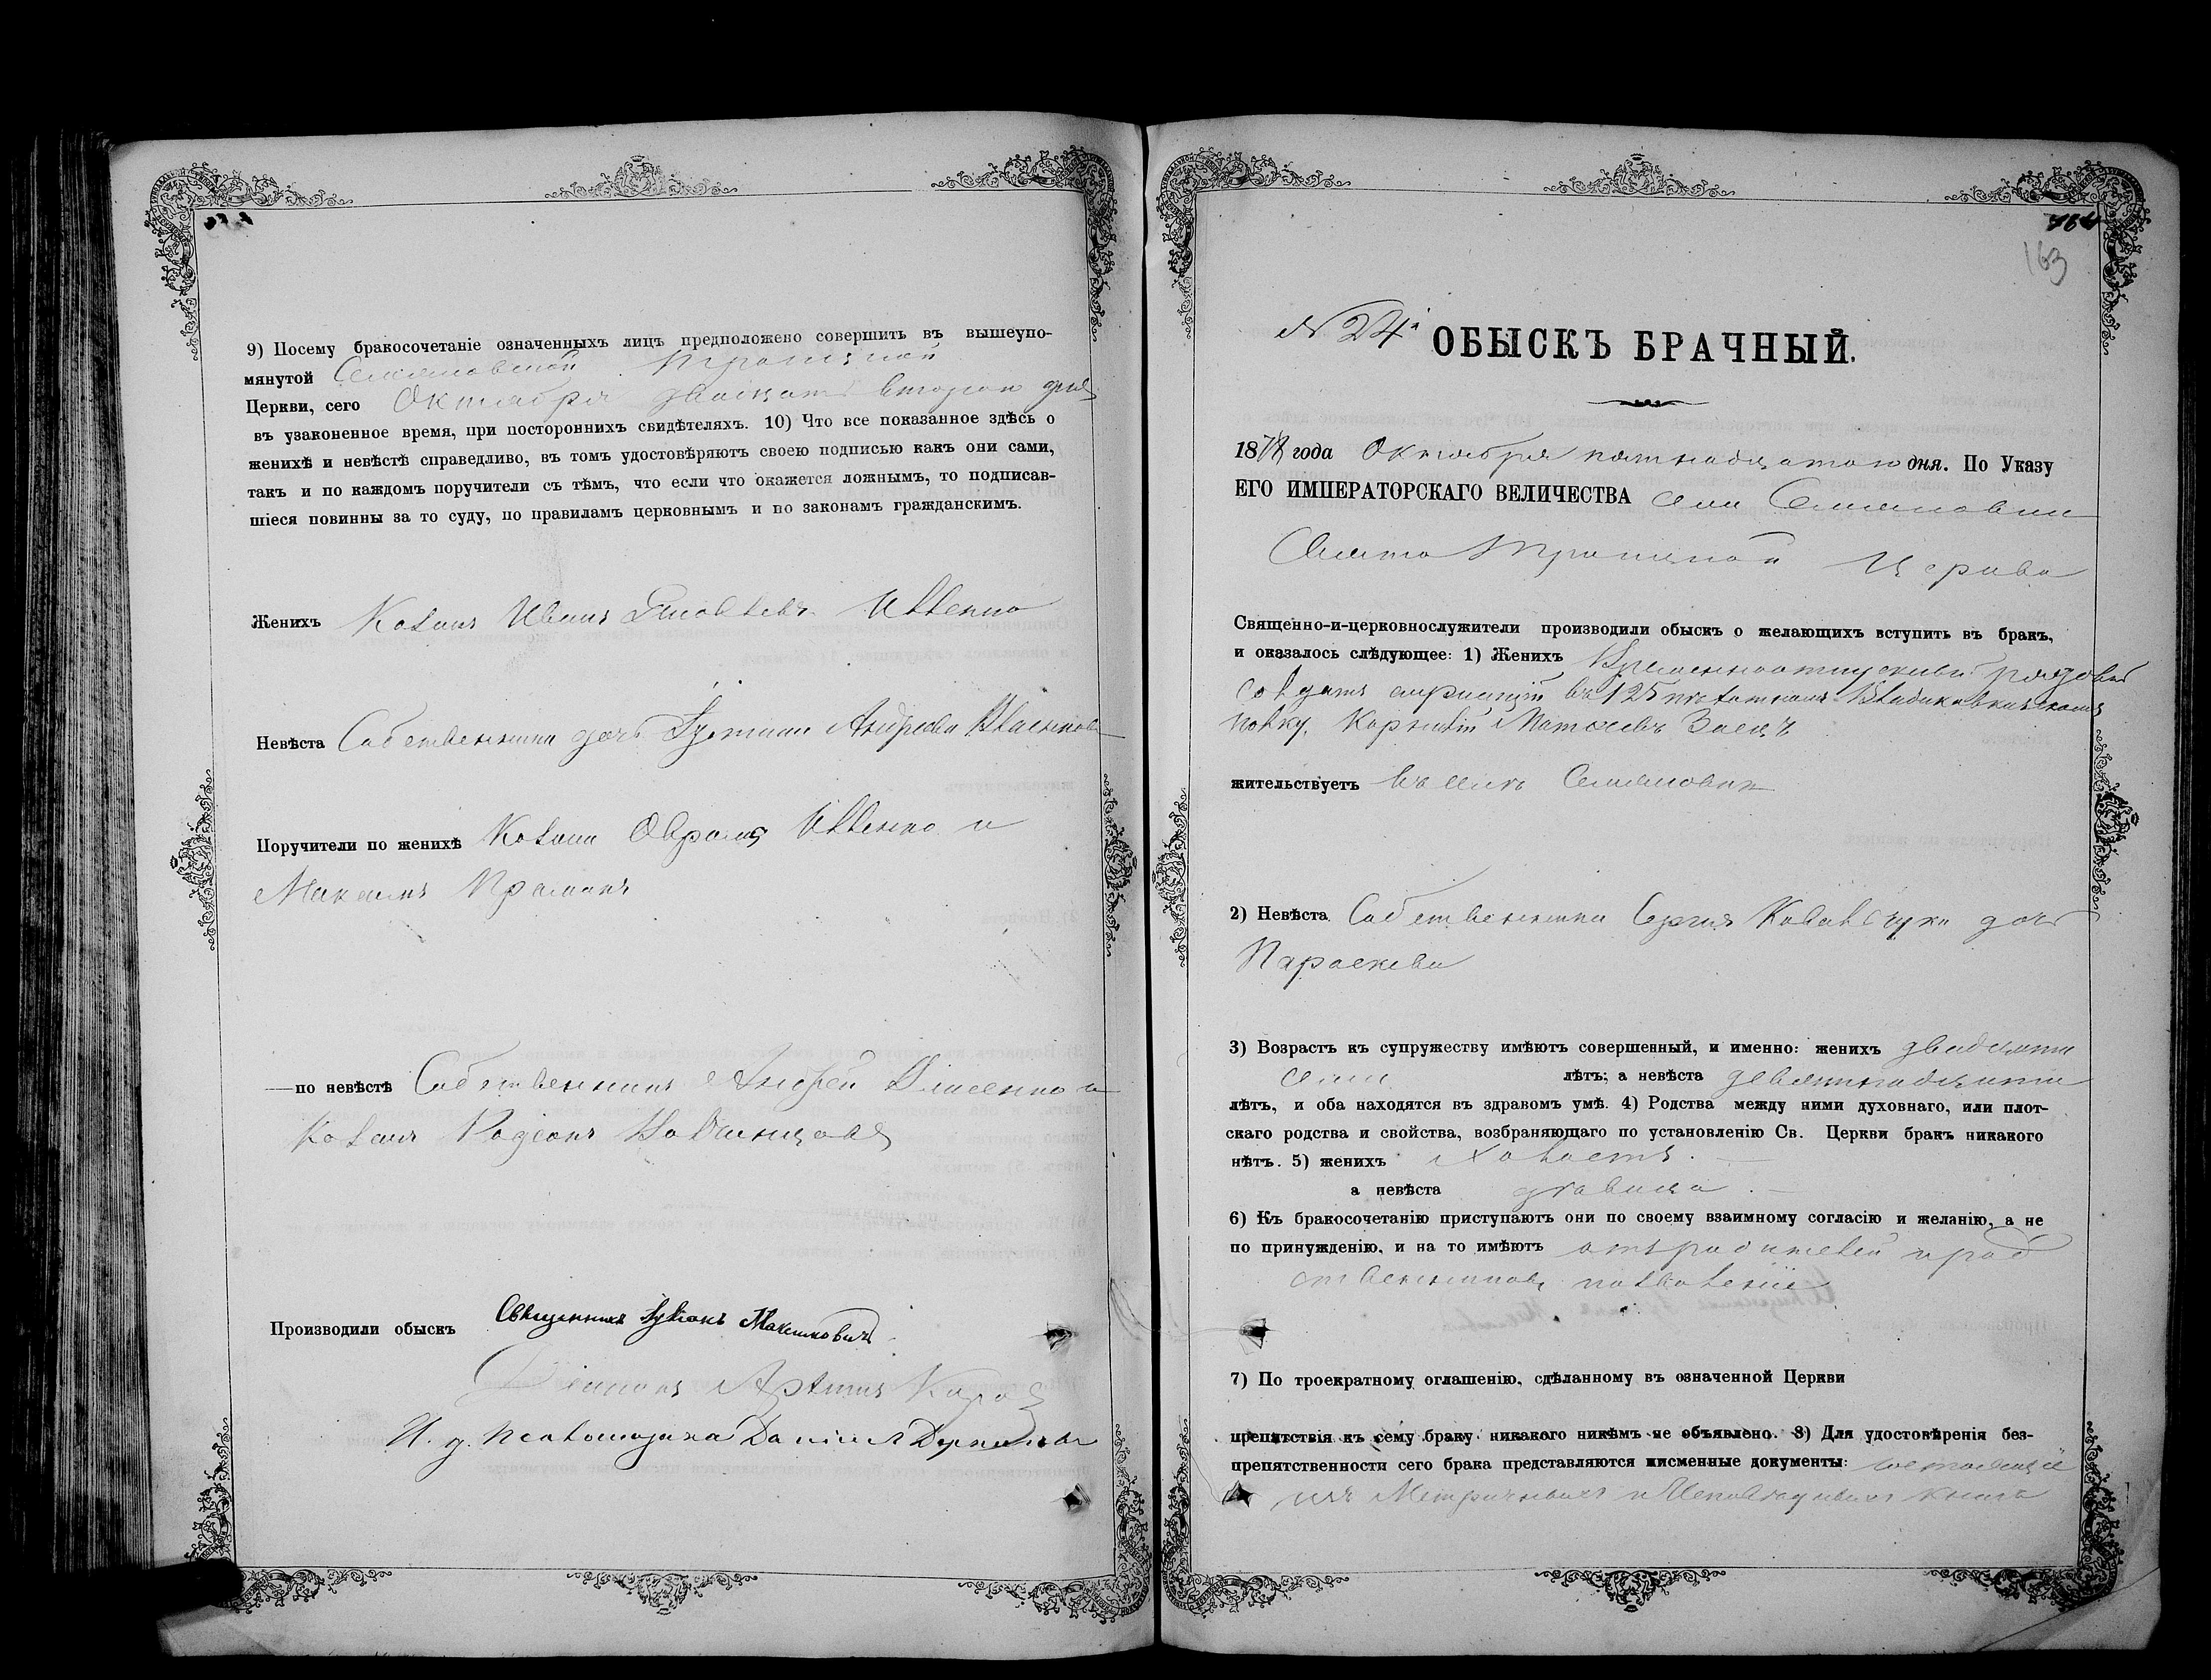 9) Посему бракосочетаніе означенныхъ лицъ предположено совершить въ вышеупо-
мянутой Семяновской Троицкой
Церкви, сего Октября двадцать втораго дня
въ узаконенное время, при постороннихъ свидѣтеляхъ. 10) Что все показанное здѣсь о
женихѣ и невѣстѣ справедливо, въ томъ удостовѣряютъ своею подписью какъ они сами,
такъ и по каждомъ поручители съ тѣмъ, что если что окажется ложнымъ, то подписав-
шіеся повинны за то суду, по правиламъ церковнымъ и по законамъ гражданскимъ.
Женихъ Козакъ Иванъ Яковлевъ
Невѣста Собственника дочь Андреева
Поручители по женихѣ Козаки и
Максимъ
—по невѣстѣ Собственникъ Андрей Власенко и
Козакъ Родіонъ
Производили обыскъ Священникъ Лукіанъ Максимовичъ
Діаконъ
И. д. Псаломщика Даніилъ
164
163
№ 24й ОБЫСКЪ БРАЧНЫЙ.
1878 года Октября пятнадцатаго дня. По Указу
ЕГО ИМПЕРАТОРСКАГО ВЕЛИЧЕСТВА села Семяновки
Свято Троицкой Церкви
Священно-и-церковнослужители производили обыскъ о желающихъ вступить въ бракъ,
и оказалось слѣдующее: 1) Женихъ Временноотпускный рядовый
солдатъ въ 125 пѣхотномъ
полку, Корнилій Матѳеевъ Заецъ
жительствуетъ въ селѣ Семяновкѣ
2) Невѣста Собственника Сергія Ковальчука дочь
Параскева
3) Возрастъ къ супружеству имѣютъ совершенный, и именно: женихъ двадцати
семи лѣтъ; а невѣста девятнадцати
лѣтъ, и оба находятся въ здравомъ умѣ. 4) Родства между ними духовнаго, или плот-
скаго родства и свойства, возбраняющаго по установленію Св. Церкви бракъ никакого
нѣтъ. 5) женихъ Холостъ. —
а невѣста дѣвица. —
6) Къ бракосочетанію приступаютъ они по своему взаимному согласію и желанію, а не
по принужденію, и на то имѣютъ отъ родителей и род
ственниковъ позволеніе
7) По троекратному оглашенію, сдѣланному въ означенной Церкви
препятствія къ сему браку никакого никѣмъ не объявлено. 8) Для удостовѣренія без-
препятственности сего брака представляются письменные документы:
изъ Метричныхъ и Исповѣдныхъ книгъ